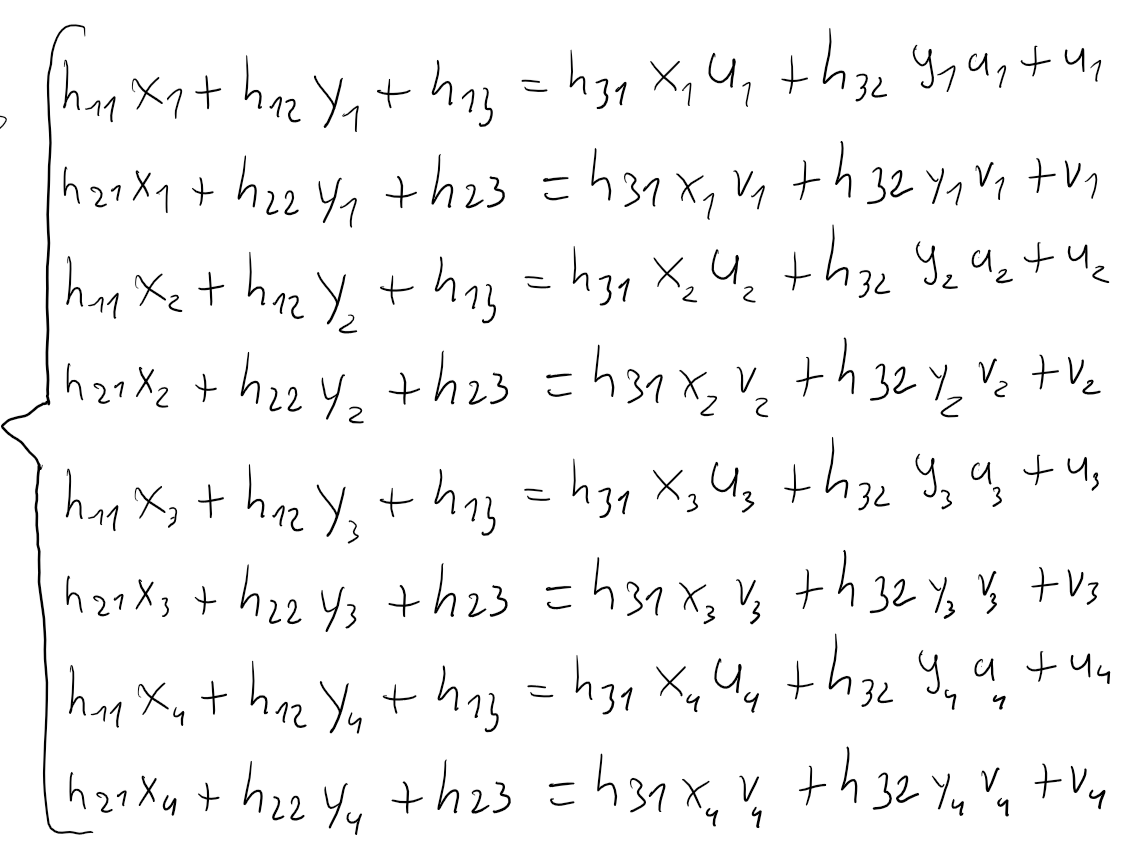 h₁₁ x₁ + h₁₂ y₁ + h₁₃ = h₃₁ x₁ u₁ + h₃₂ y₁ u₁ + u₁
h₂₁ x₁ + h₂₂ y₁ + h₂₃ = h₃₁ x₁ v₁ + h₃₂ y₁ v₁ + v₁
h₁₁ x₂ + h₁₂ y₂ + h₁₃ = h₃₁ x₂ u₂ + h₃₂ y₂ u₂ + u₂
h₂₁ x₂ + h₂₂ y₂ + h₂₃ = h₃₁ x₂ v₂ + h₃₂ y₂ v₂ + v₂
h₁₁ x₃ + h₁₂ y₃ + h₁₃ = h₃₁ x₃ u₃ + h₃₂ y₃ u₃ + u₃
h₂₁ x₃ + h₂₂ y₃ + h₂₃ = h₃₁ x₃ v₃ + h₃₂ y₃ v₃ + v₃
h₁₁ x₄ + h₁₂ y₄ + h₁₃ = h₃₁ x₄ u₄ + h₃₂ y₄ u₄ + u₄
h₂₁ x₄ + h₂₂ y₄ + h₂₃ = h₃₁ x₄ v₄ + h₃₂ y₄ v₄ + v₄